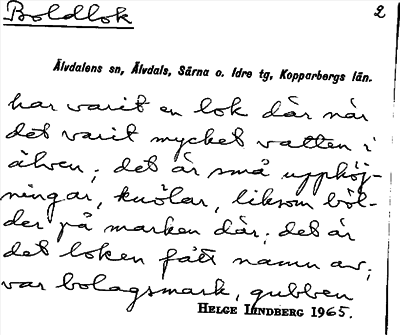 Boldlok
2
Älvdalens sn, Älvdals, Särna o. Idre tg, Kopparbergs län.
har varit en lok där när
det varit mycket vatten i
älven; det är små upphöj-
ningar, knölar, liksom böl-
der på marken där; det är
det loken fått namn av;
var bolagsmark, gubben
HELGE LINDBERG 1965.